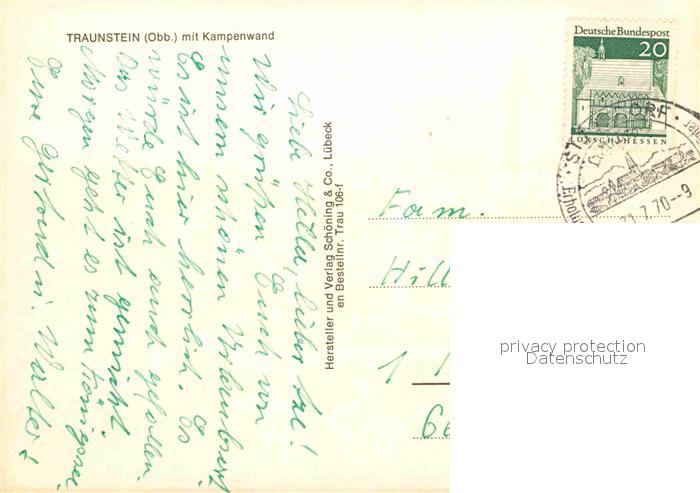 TRAUNSTEIN (Obb.) mit Kampenwand
Liebe Hella, lieber
Wir grüßen Euch von
unsern schönen
Es ist hier herrlich. Es
würde Euch auch gefallen.
Das Wetter ist gemischt.
Morgen geht es zum Königssee.
Eure Gertrud u. Walter!
Hersteller und Verlag Schöning & Co., Lübeck
en Bestellnr. Trau 106-f
Deutsche Bundespost
20
LORSCH/HESSEN
21.7.70--9
Fam.
Hill
1
privacy protection
Datenschutz